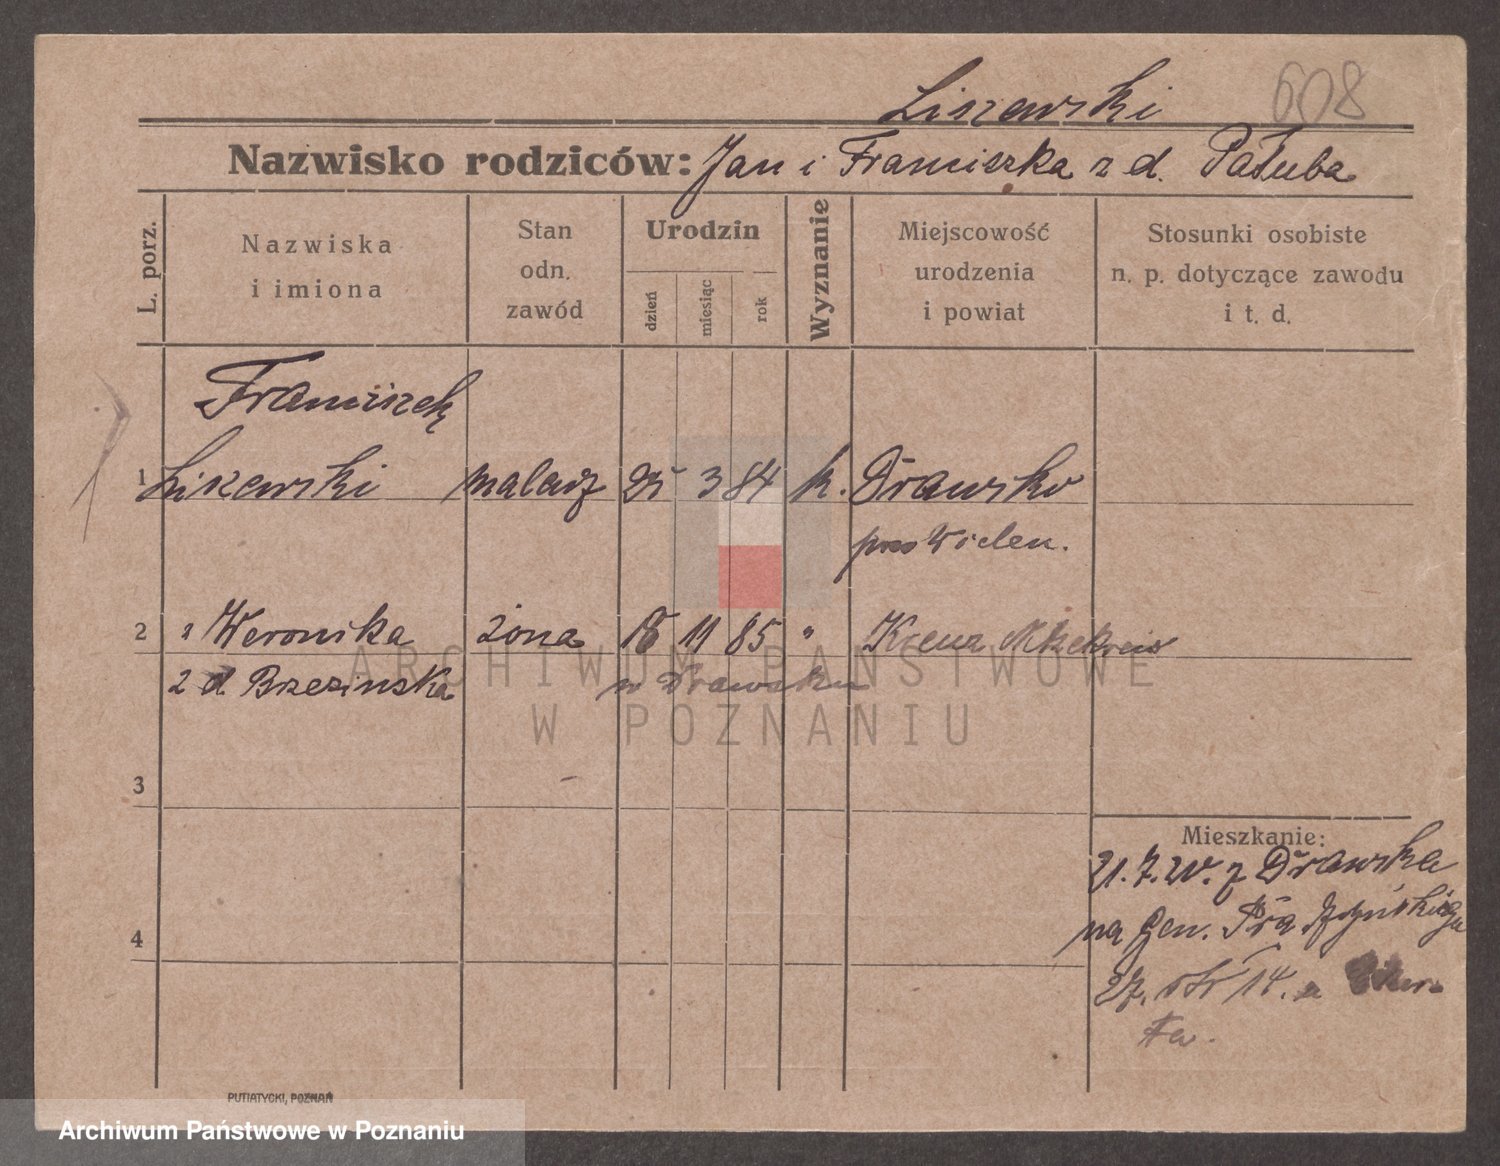 Liszewski 608
Nazwisko rodziców: Jan i Franciszka z d. Pałuba
L. porz.
Nazwiska
i imiona
Stan
odn.
zawód
Urodzin
dzień
miesiąc
rok
Wyznanie
Miejscowość
urodzenia
i powiat
Stosunki osobiste
n. p. dotyczące zawodu
i t. d.
Franciszek
1 Liszewski 3 84 k. Drawsko
Wielen.
2 Weronika żona 11 85 "
z d Brzezinska w Drawsku
3
4
Mieszkanie:
z Drawska
na Gen.
27. 14.
PUTIATYCKI, POZNAŃ
ARCHIWUM PAŃSTWOWE
W POZNANIU
Archiwum Państwowe w Poznaniu